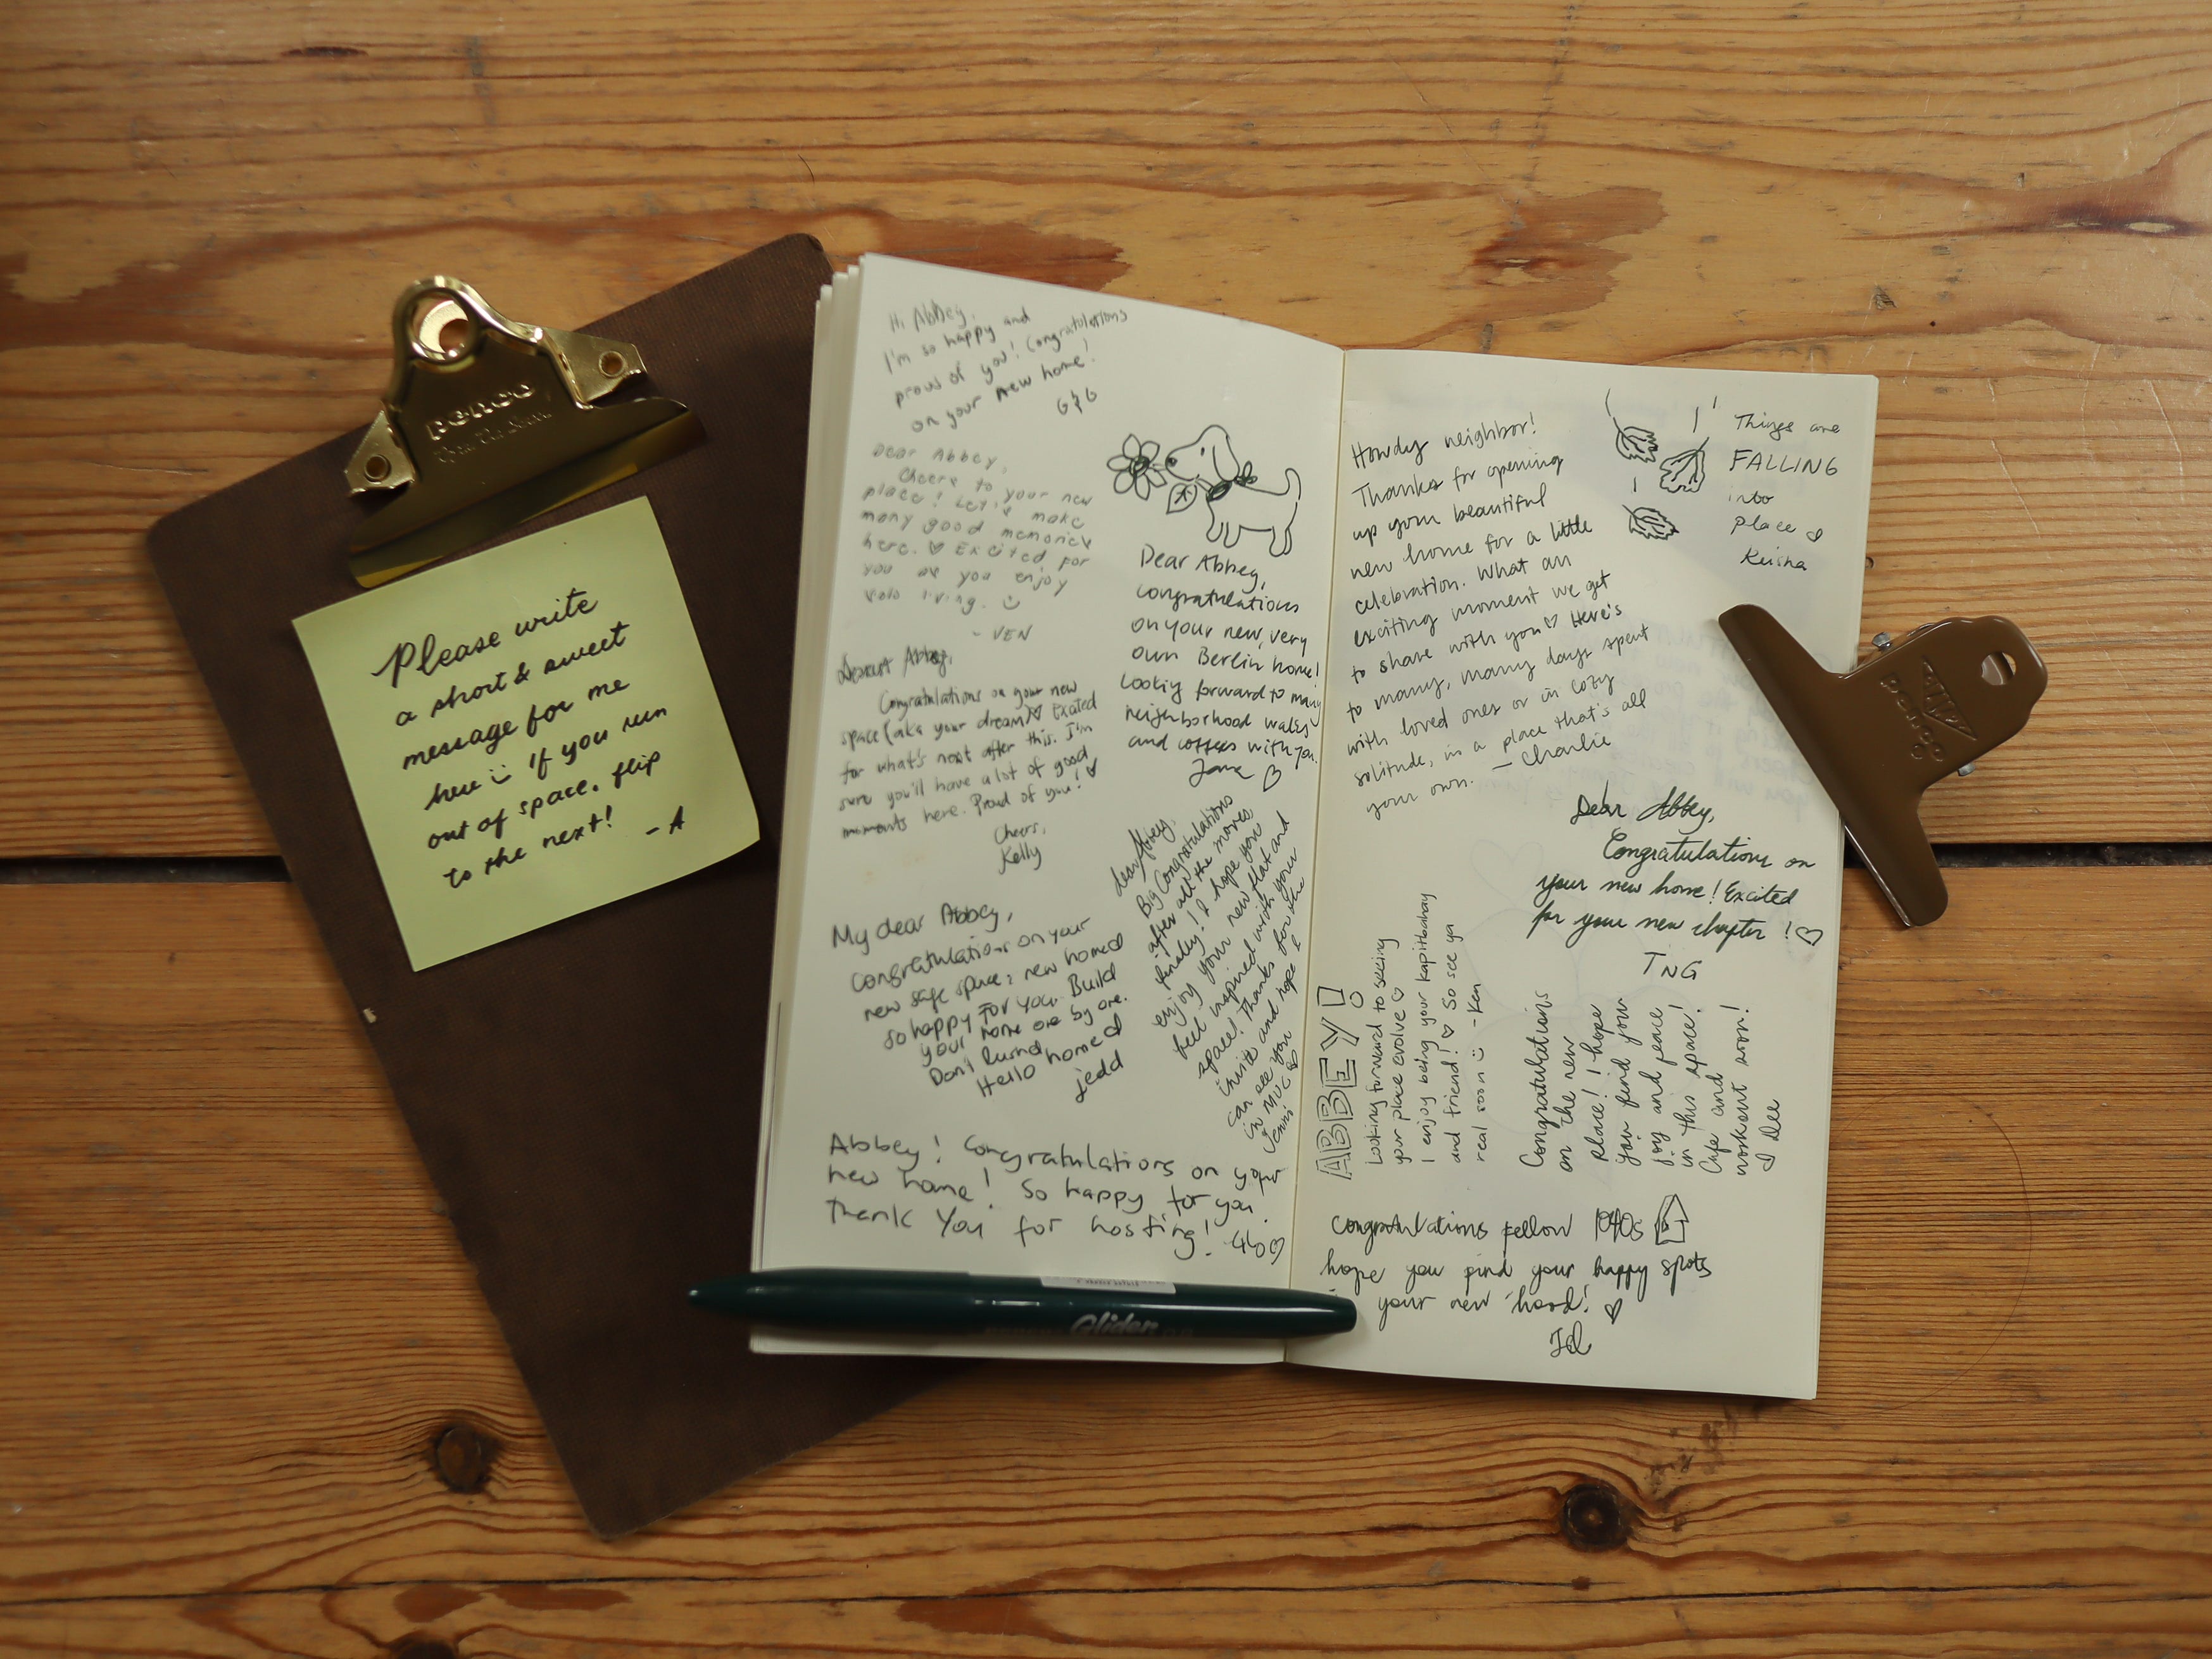 penco
Please write
a short & sweet
message for me
here :) If you run
out of space, flip
to the next!
- A
Hi Abbey,
I'm so happy and
proud of you! Congratulations
on your new home!
G&G
Dear Abbey,
Cheers to your new
place! Let's make
many good memories
here. ♡ Excited for
you as you enjoy
solo living. :)
- VEN
Dearest Abbey,
Congratulations on your new
space (aka your dream) ♡ Excited
for what's next after this. I'm
sure you'll have a lot of good
moments here. Proud of you! ♡
Cheers,
Kelly
My dear Abbey,
congratulations on your
new safe space; new home
so happy for you. Build
your home one by one.
Don't Rush
Hello home
jedd
Abbey! Congratulations on your
new home! So happy for you.
Thank You for hosting!
♡
Dear Abbey,
congratulations
on your new, very
own Berlin home!
Looking forward to many
neighborhood walks
and coffees with you.
♡
dear Abbey,
Big Congratulations
after all the moves
finally! I hope you
enjoy your new flat and
feel inspired with your
space! Thanks for the
invite and hope I
can see you
in MUC ♡
Jenni
Howdy neighbor!
Thanks for opening
up your beautiful
new home for a little
celebration. What an
exciting moment we get
to share with you ♡ Here's
to many, many days spent
with loved ones or in cozy
solitude, in a place that's all
your own. — Charlie
Things are
FALLING
into
place
Keisha
Dear Abbey,
Congratulations on
your new home! Excited
for your new chapter! ♡
TNG
ABBEY!
Looking forward to seeing
your place evolve ♡
I enjoy being your kapitbahay
and friend! ♡ So see ya
real soon :) -Ken
Congratulations
on the new
place! I hope
you find you
joy and peace
in this space!
Cafe and
workout soon!
Dee
Congratulations fellow 1040s
hope you find your happy spots
your new 'hood! ♡
penco
Glider